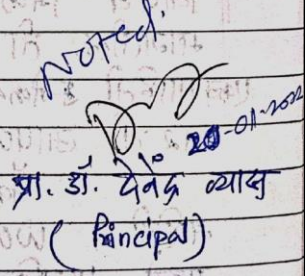 Noted.
20-01-2022
प्रा. डॉ. देवेंद्र व्यास
(Principal)